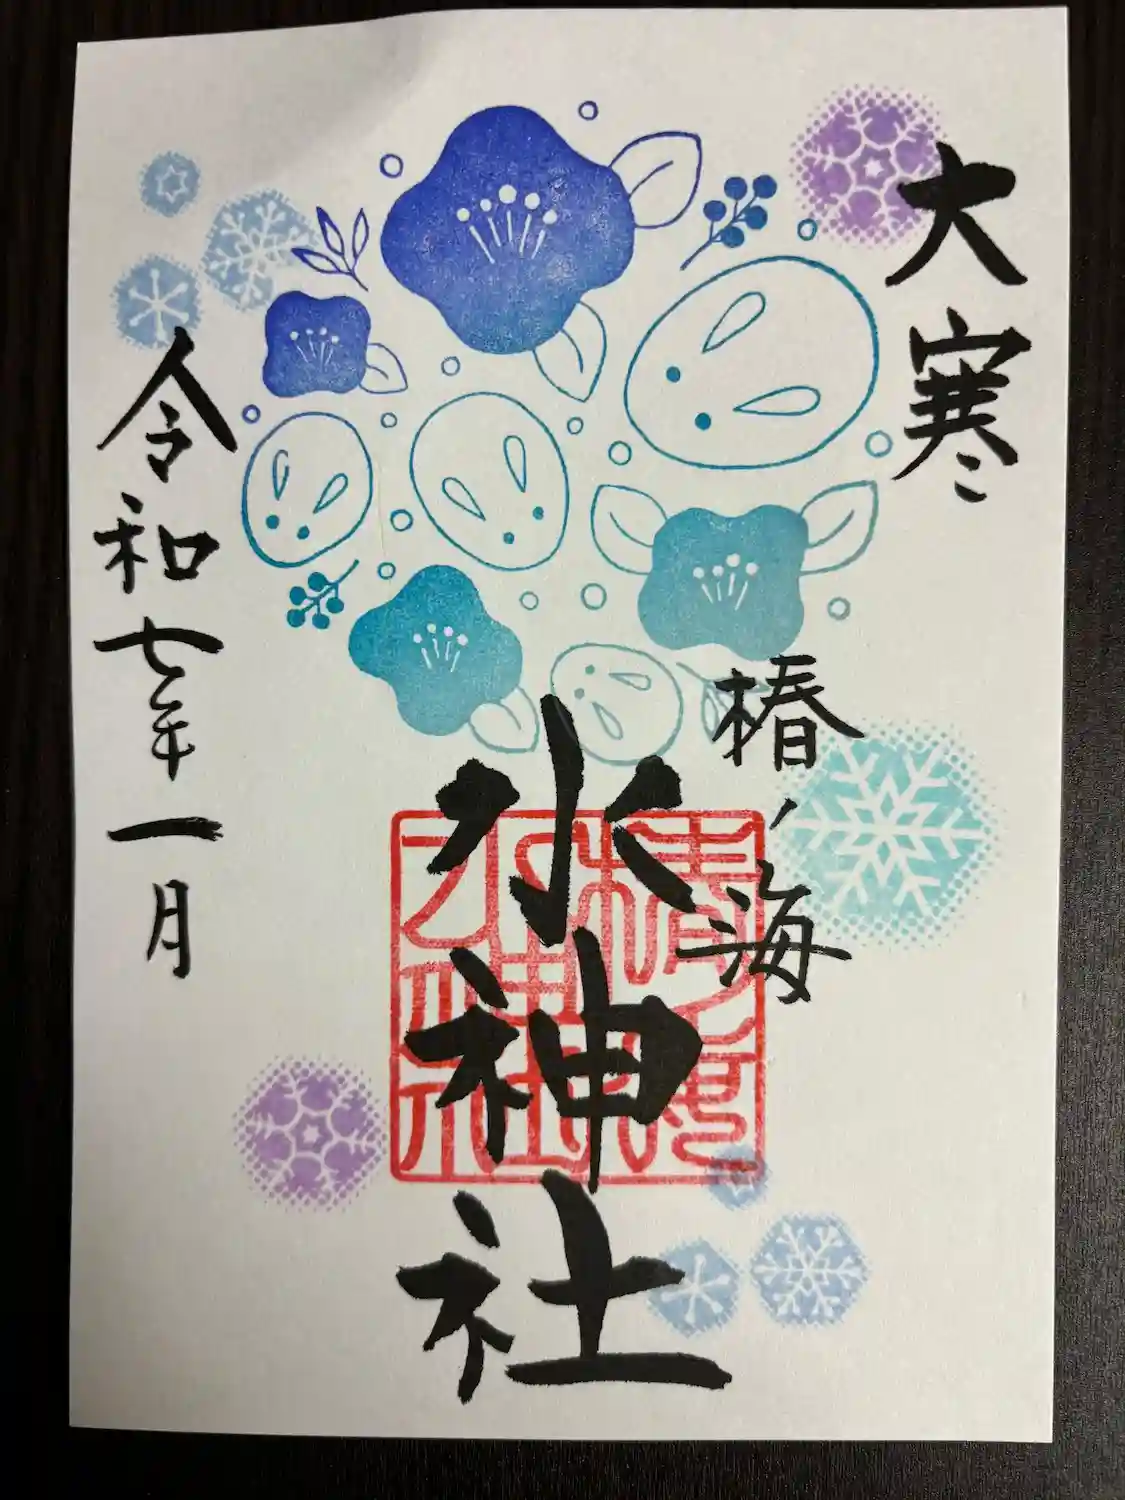 大寒
椿ノ海
水神社
令和七年一月
椿ノ海
水神社